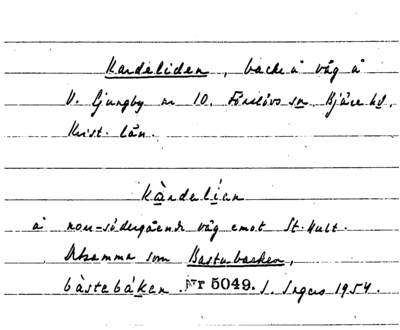 Kardeliden, backe å väg å
V. Ljungby nr 10. Förslövs sn. Bjäre hd.
Krist. län.
kàrdelíən
å norr-södergående väg emot St. Hult.
Detsamma som Bastubacken,
bàstəbákən. Nr 5049. I. Ingers 1954.